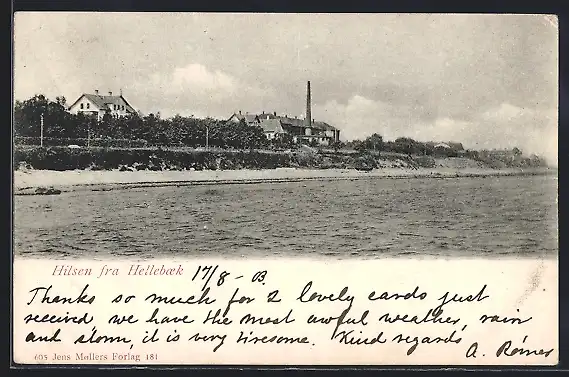 Hilsen fra Hellebæk 17/8 - 03
Thanks so much for 2 lovely cards just
received we have the most awful weather, rain
and storm, it is very tiresome. Kind regards
A.
605 Jens Møllers Forlag 181